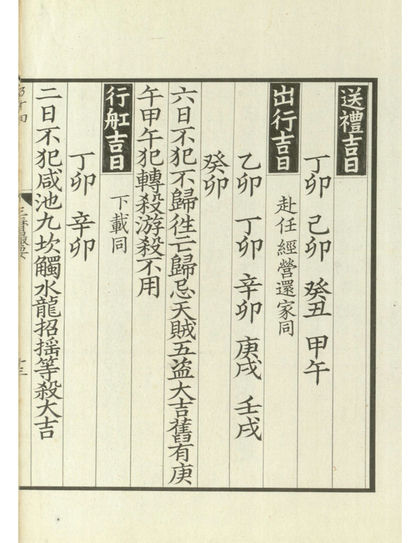 送禮吉日
丁卯 己卯 癸丑 甲午
出行吉日 赴任 經營還家同
乙卯 丁卯 辛卯 庚戌 壬戌
癸卯
六日不犯不歸徃亡歸忌天賊五盗大吉舊有庚
午甲午犯轉殺游殺不用
行舡吉日 下載同
丁卯 辛卯
二日不犯咸池九坎觸水龍招摇等殺大吉